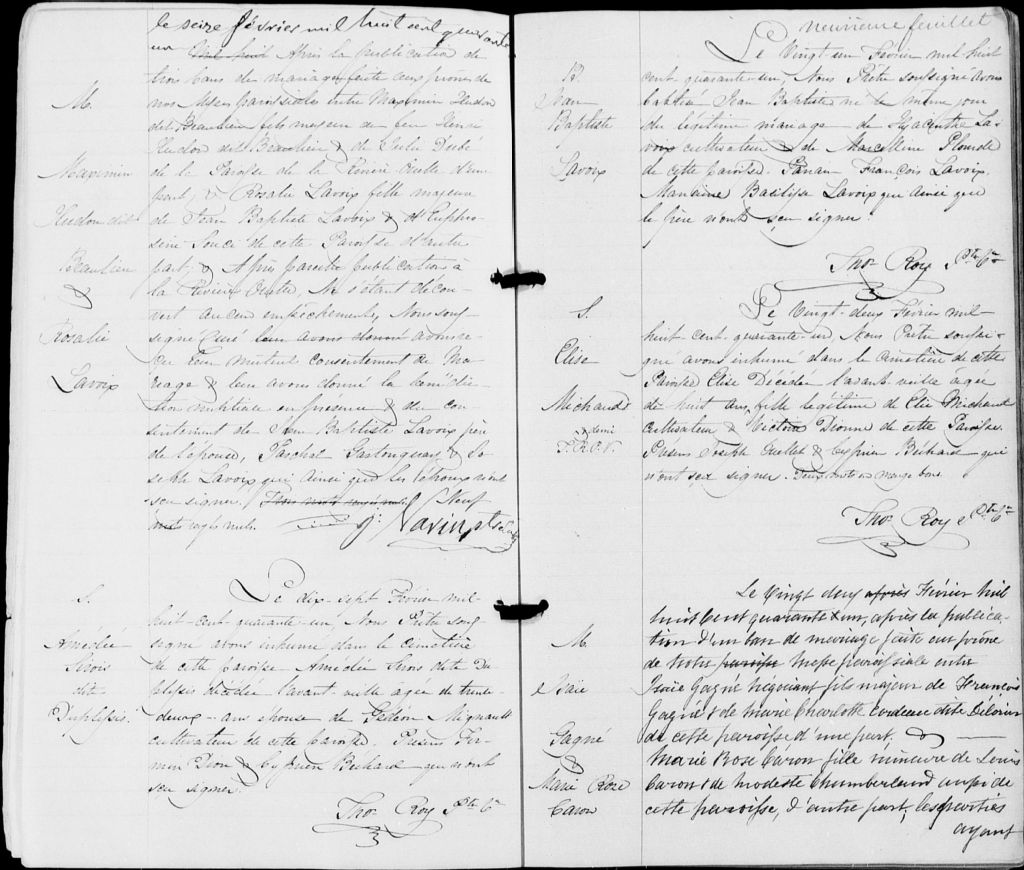 le seize février mil huit cent quarante
un Après la publication de
trois bans de mariage faite aux prônes de
nos Messes paroissiales entre Maximin Hudon
dit Beaulieu fils majeur de feu Henri
Hudon dit Beaulieu & de Julie Dubé
de la Paroisse de la Rivière Ouelle d'une
part, & Rosalie Lavoix fille majeure
de Jean Baptiste Lavoix & d'Euphro-
sine Souci de cette Paroisse d'autre
part; & Après pareille publication à
la Rivière Ouelle Ne s'étant décou-
vert aucun empêchement, Nous sous-
signé Curé leur avons donné avons re-
çu leur mutuel consentement de Ma-
riage & leur avons donné la bénédic-
tion nuptiale en présence & du con-
sentement de Jean Baptiste Lavoix père
de l'épouse, Paschal Gastonguay, & Jo-
seph Lavoix qui ainsi que les époux n'ont
seu signer. Neuf
mots rayés nuls.
M.
Maximin
Hudon dit
Beaulieu
&
Rosalie
Lavoix
Le dix-sept Février mil-
huit-cent-quarante-un, Nous Prêtre sous-
signé avons inhumé dans le cimetière
de cette paroisse Amédée Sirois dit Du
plessis décédée l'avant-veille agée de trente-
deux-ans épouse de Gédéon Mignault
cultivateur de cette paroisse. Présens Fir-
min Dion & Cyprien Béchard qui n'ont
seu signer.
Thos Roy Ptre
S.
Amédée
Sirois
dit
Duplessis
neuvième feuillet
Le Vingt un Février mil-huit
cent-quarante-un, Nous Prêtre soussigné avons
baptisé Jean Baptiste né le même jour
du légitime mariage de Hyacinthe La-
voix cultivateur & de Marcelline Plourde
de cette paroisse. Parain François Lavoix.
Maraine Basilise Lavoix qui ainsi que
le père n'ont seu signer.
Thos Roy Ptre
B.
Jean
Baptiste
Lavoix
Le Vingt-deux Février mil
huit-cent-quarante-un, Nous Prêtre soussi-
gné avons inhumé dans le cimetière de cette
Paroisse Elise Décédée l'avant-veille agée
de huit ans, fille légitime de Elie Michaud
cultivateur & Victoire Dionne de cette Paroisse.
Présens Joseph Ouellet & Cyprien Béchard qui
n'ont seu signer. Deux mots en marge bons.
Thos Roy Ptre
S.
Elise
Michaud
& demi
T.R.O.V.
Le Vingt deux après Février mil
huit Cent quarante & un, après la publica-
tion d'un ban de mariage faite au prône
de Notre paroisse Messe paroissiale entre
Isaïe Gagné Négociant fils majeur de François
Gagné & de Marie Charlotte
de cette paroisse d'une part, &
Marie Rose Caron fille mineure de Louis
Caron & de Modeste Chamberland aussi de
cette paroisse, d'autre part, les parties
ayant
M.
Isaïe
Gagné
&
Marie Rose
Caron